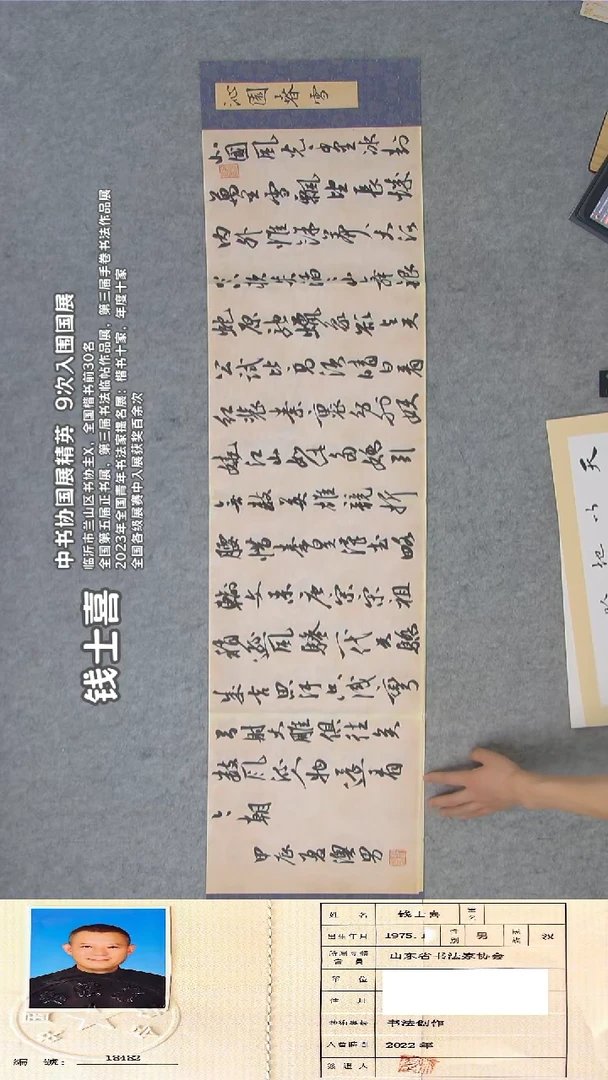 沁園春雪
北國風光千里冰封
萬里雪飄望長城
内外惟餘莽々大河
上下頓失滔々山舞銀
蛇原馳蠟象欲与天
公試比高須晴日看
红裝素裹分外妖
嬈江山如此多嬌引
無数英雄競折
腰惜秦皇漢武略
輸文采唐宗宋祖
稍遜風騷一代天驕
成吉思汗只識彎
弓射大雕俱往矣
数風流人物還看
今朝
甲辰夏
钱士喜
中书协国展精英 9次入围国展
临沂市兰山区书协主X，全国楷书前30名
全国第五届正书展、第三届书法临帖作品展，第三届手卷书法作品展
2023年全国青年书法家提名展：楷书十家，年度十家
全国各级展赛中入展获奖百余次
天
以
地
编 號：18482
姓 名 钱士喜
1975.1 男 汉
山东省书法家协会
书法创作
2022年